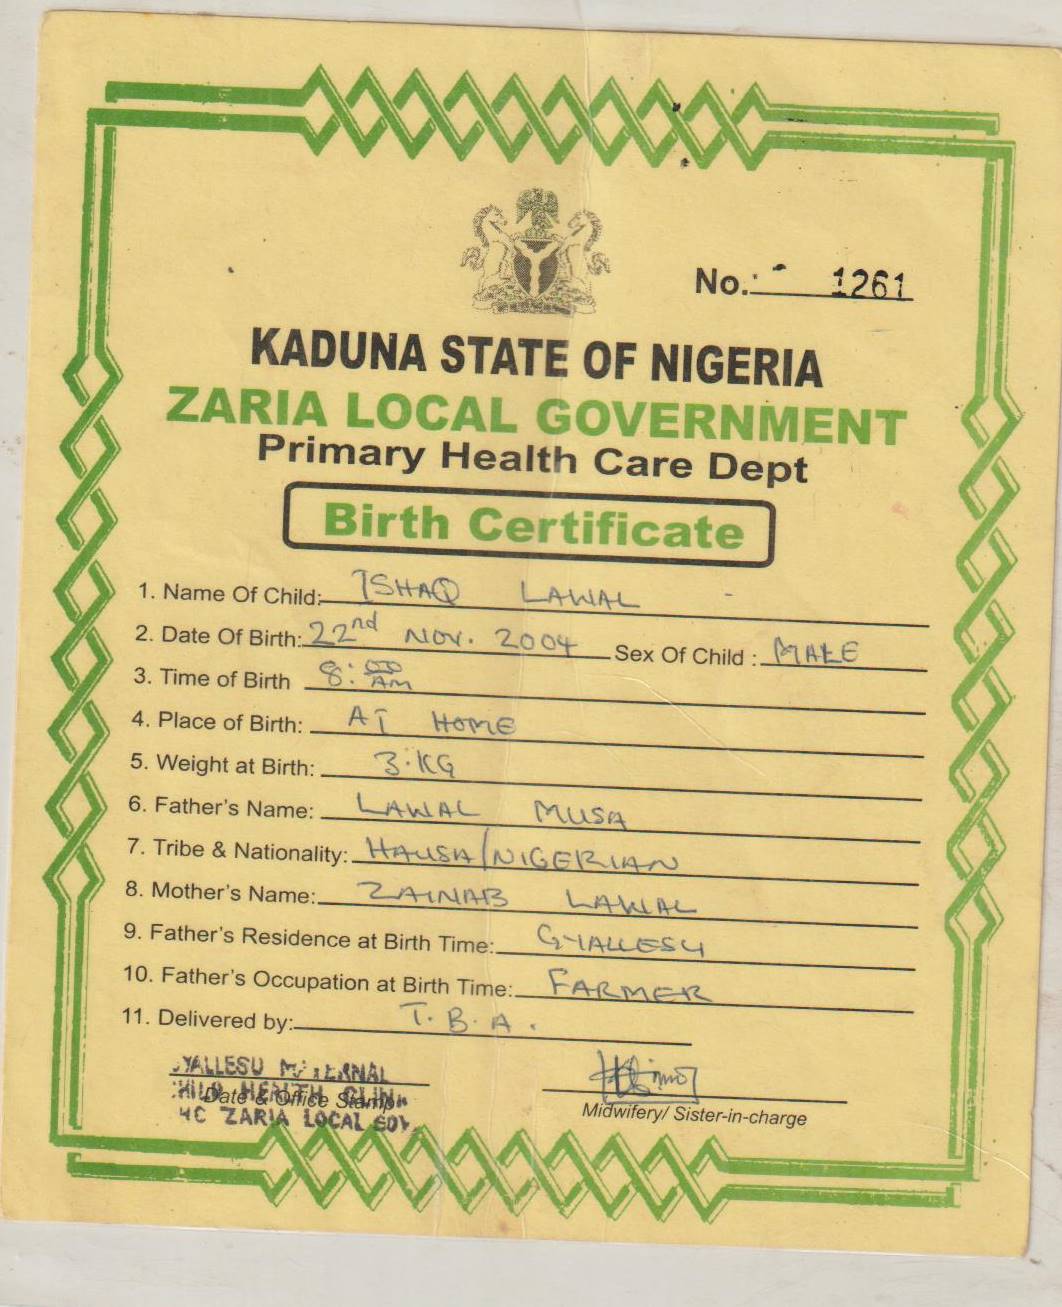 No. 1261
KADUNA STATE OF NIGERIA
ZARIA LOCAL GOVERNMENT
Primary Health Care Dept
Birth Certificate
1. Name Of Child: ISHAQ LAWAL
2. Date Of Birth: 22nd NOV. 2004 Sex Of Child : MALE
3. Time of Birth 8:00 AM
4. Place of Birth: AT HOME
5. Weight at Birth: 3.KG
6. Father's Name: LAWAL MUSA
7. Tribe & Nationality: HAUSA/NIGERIAN
8. Mother's Name: ZAINAB LAWAL
9. Father's Residence at Birth Time: GYALLESU
10. Father's Occupation at Birth Time: FARMER
11. Delivered by: T.B.A.
YALLESU
Date & Office Stamp
ZARIA LOCAL GOV.
Midwifery/ Sister-in-charge